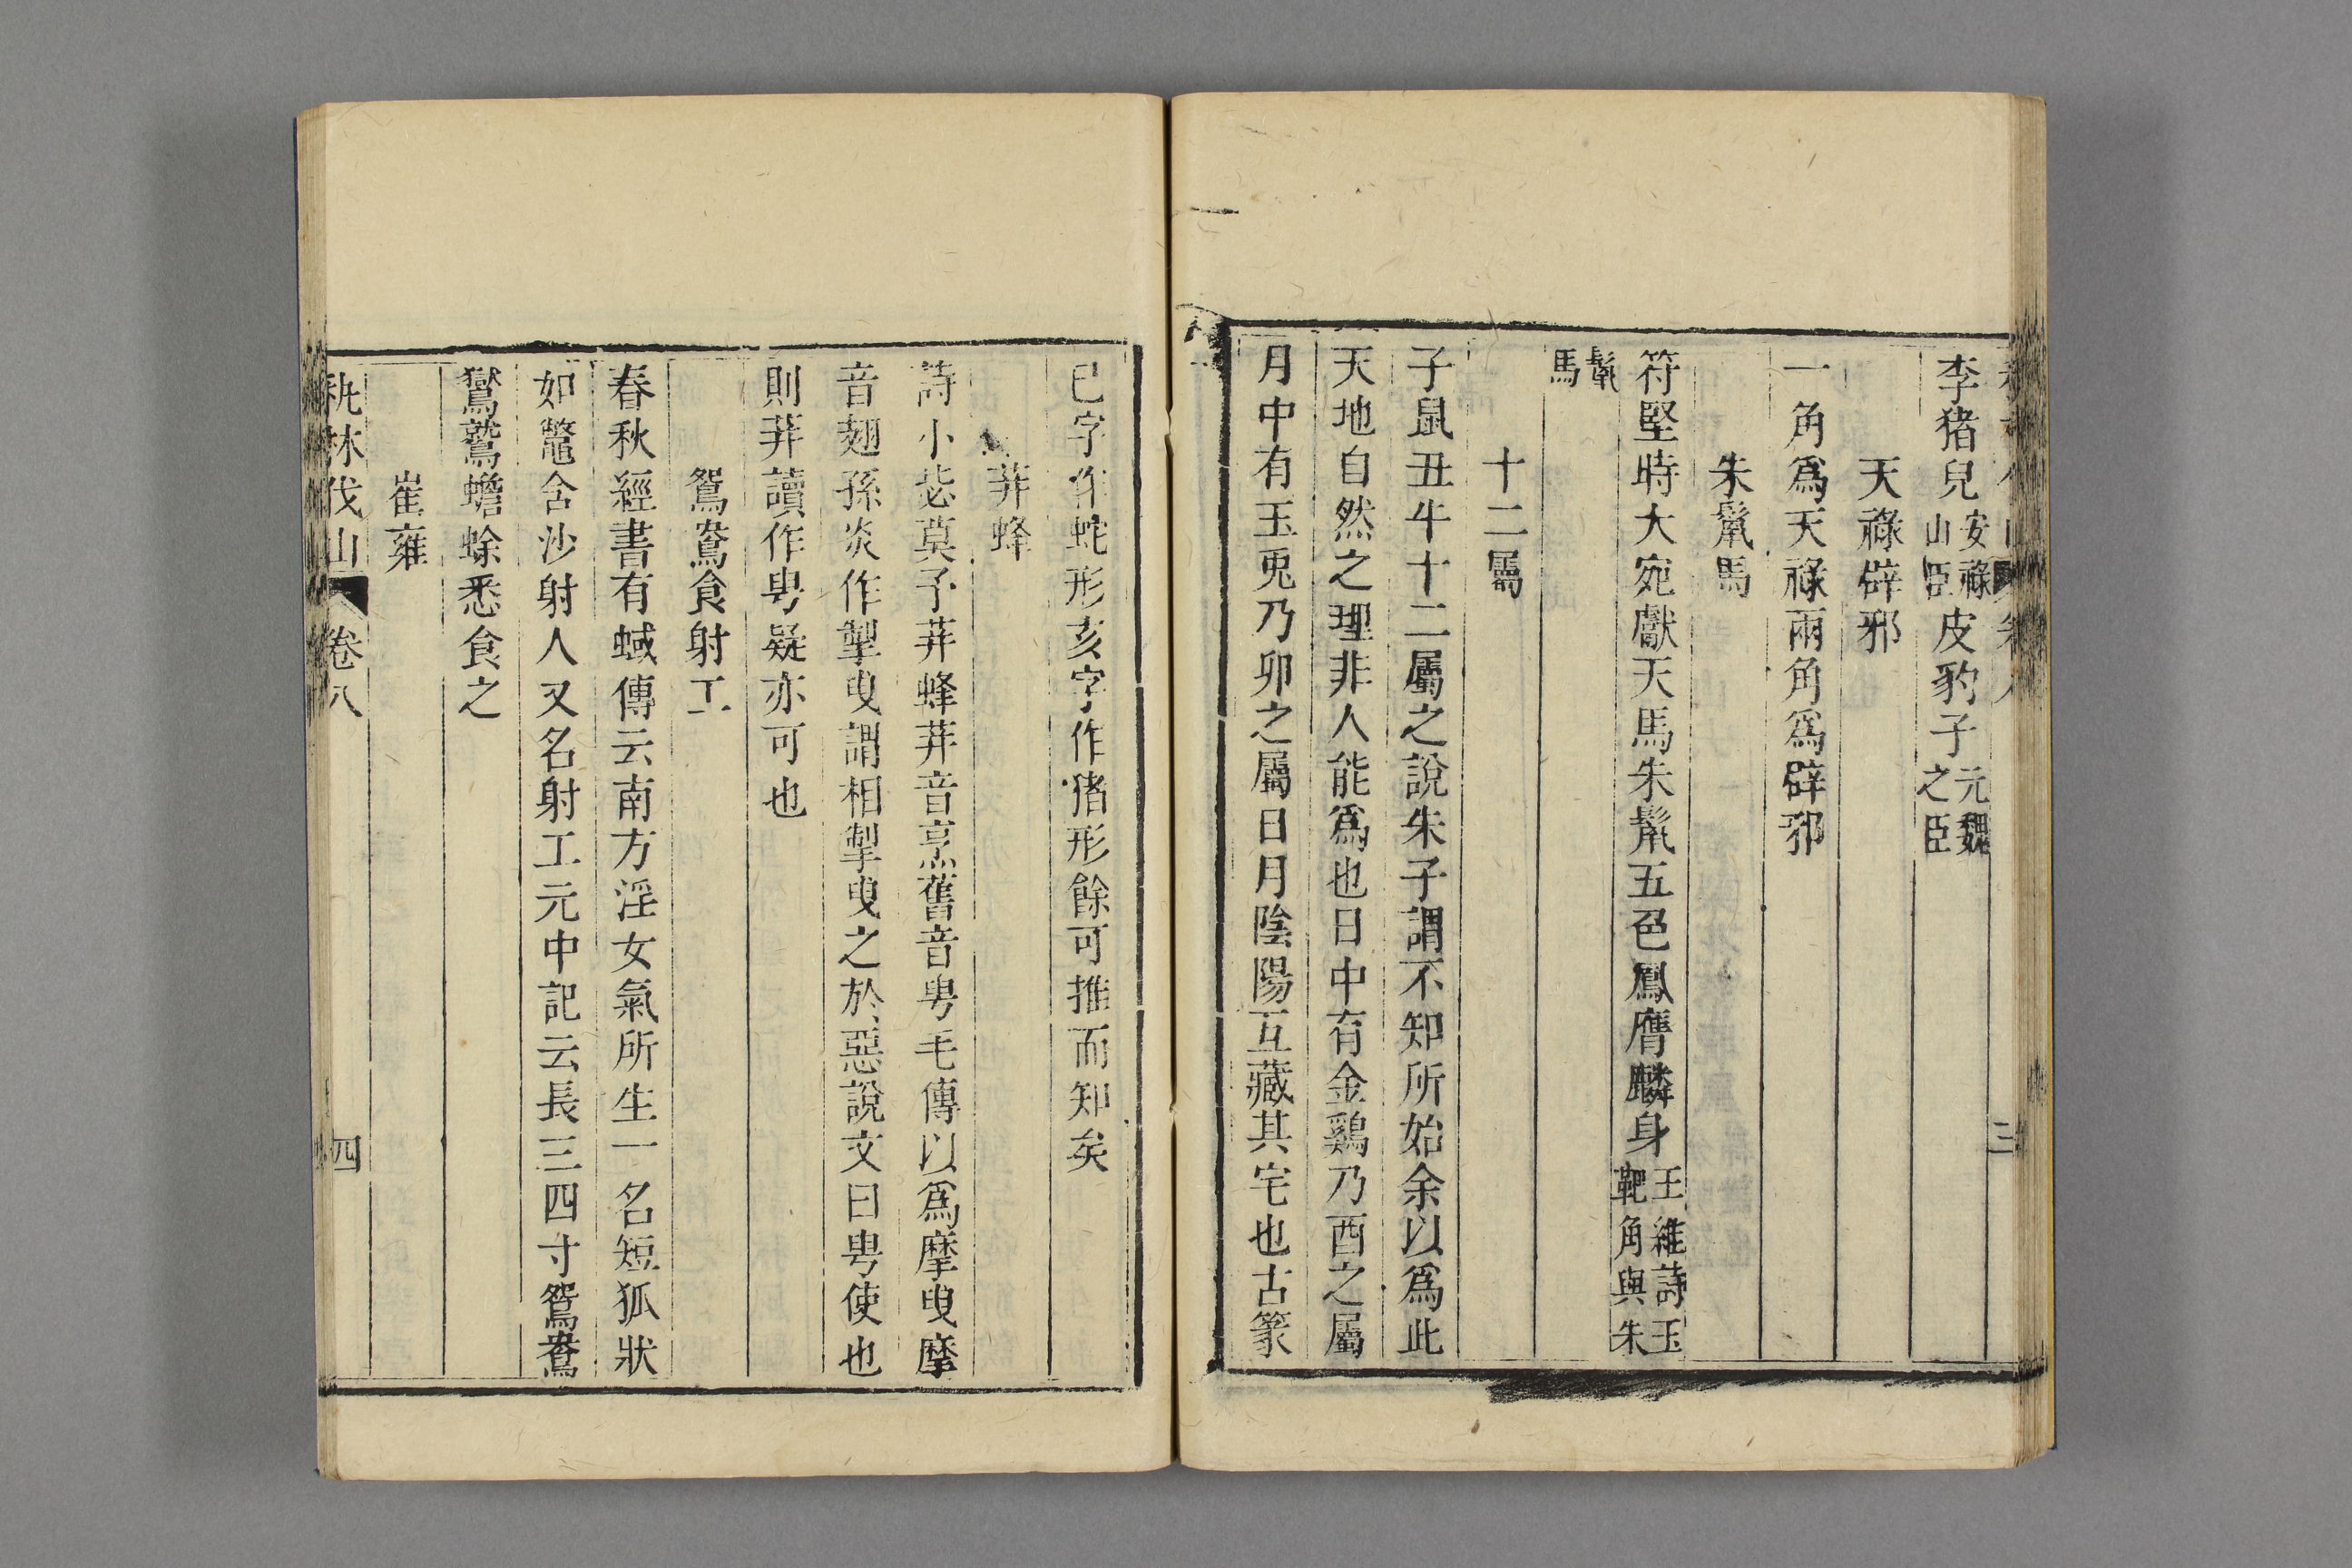 李猪兒安祿山臣皮豹子元魏之臣
天祿辟邪
一角爲天祿兩角爲辟邪
朱鬛馬
符堅時大宛獻天馬朱鬛五色鳳膺麟身王維詩玉靶角與朱
鬛馬
十二屬
子鼠丑牛十二屬之說朱子謂不知所始余以爲此
天地自然之理非人能爲也日中有金鷄乃酉之屬
月中有玉兎乃卯之屬日月陰陽互藏其宅也古篆
巳字作蛇形亥字作猪形餘可推而知矣
荓蜂
詩小毖莫予荓蜂荓音烹舊音甹毛傳以爲摩曳摩
音翅孫炎作掣曳謂相掣曳之於惡說文曰甹使也
則荓讀作甹疑亦可也
鴛鴦食射工
春秋經書有蜮傳云南方淫女氣所生一名短狐狀
如鼈含沙射人又名射工元中記云長三四寸鴛鴦
鸑鷟蟾蜍悉食之
崔雍
秇林伐山 卷八 四